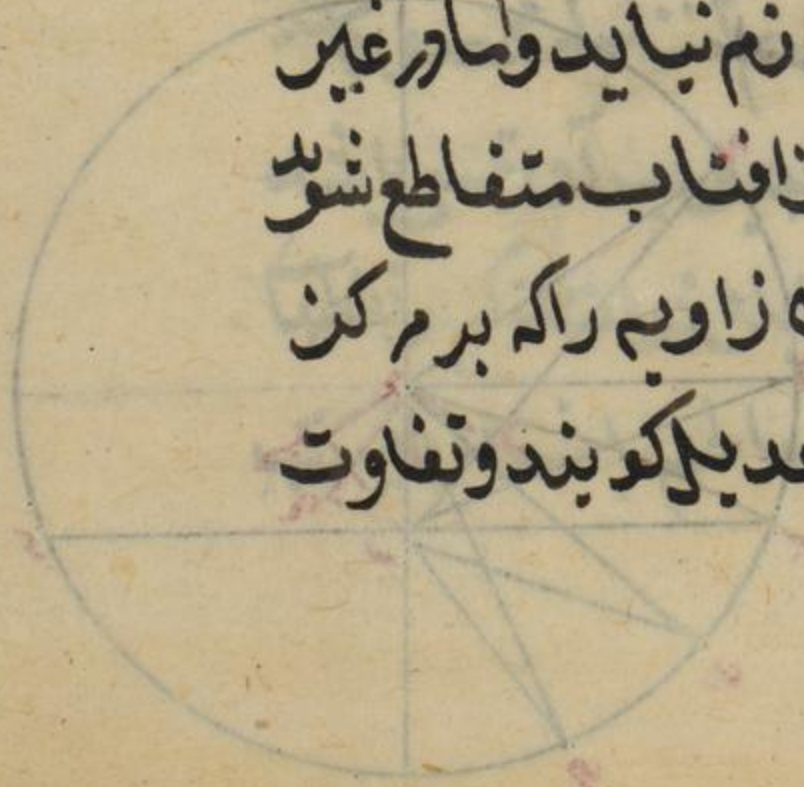 زم نیاید واما در غیر
افتاب متقاطع شوند
زاویه راکه بر مرکز
عدیل کویند و تفاوت